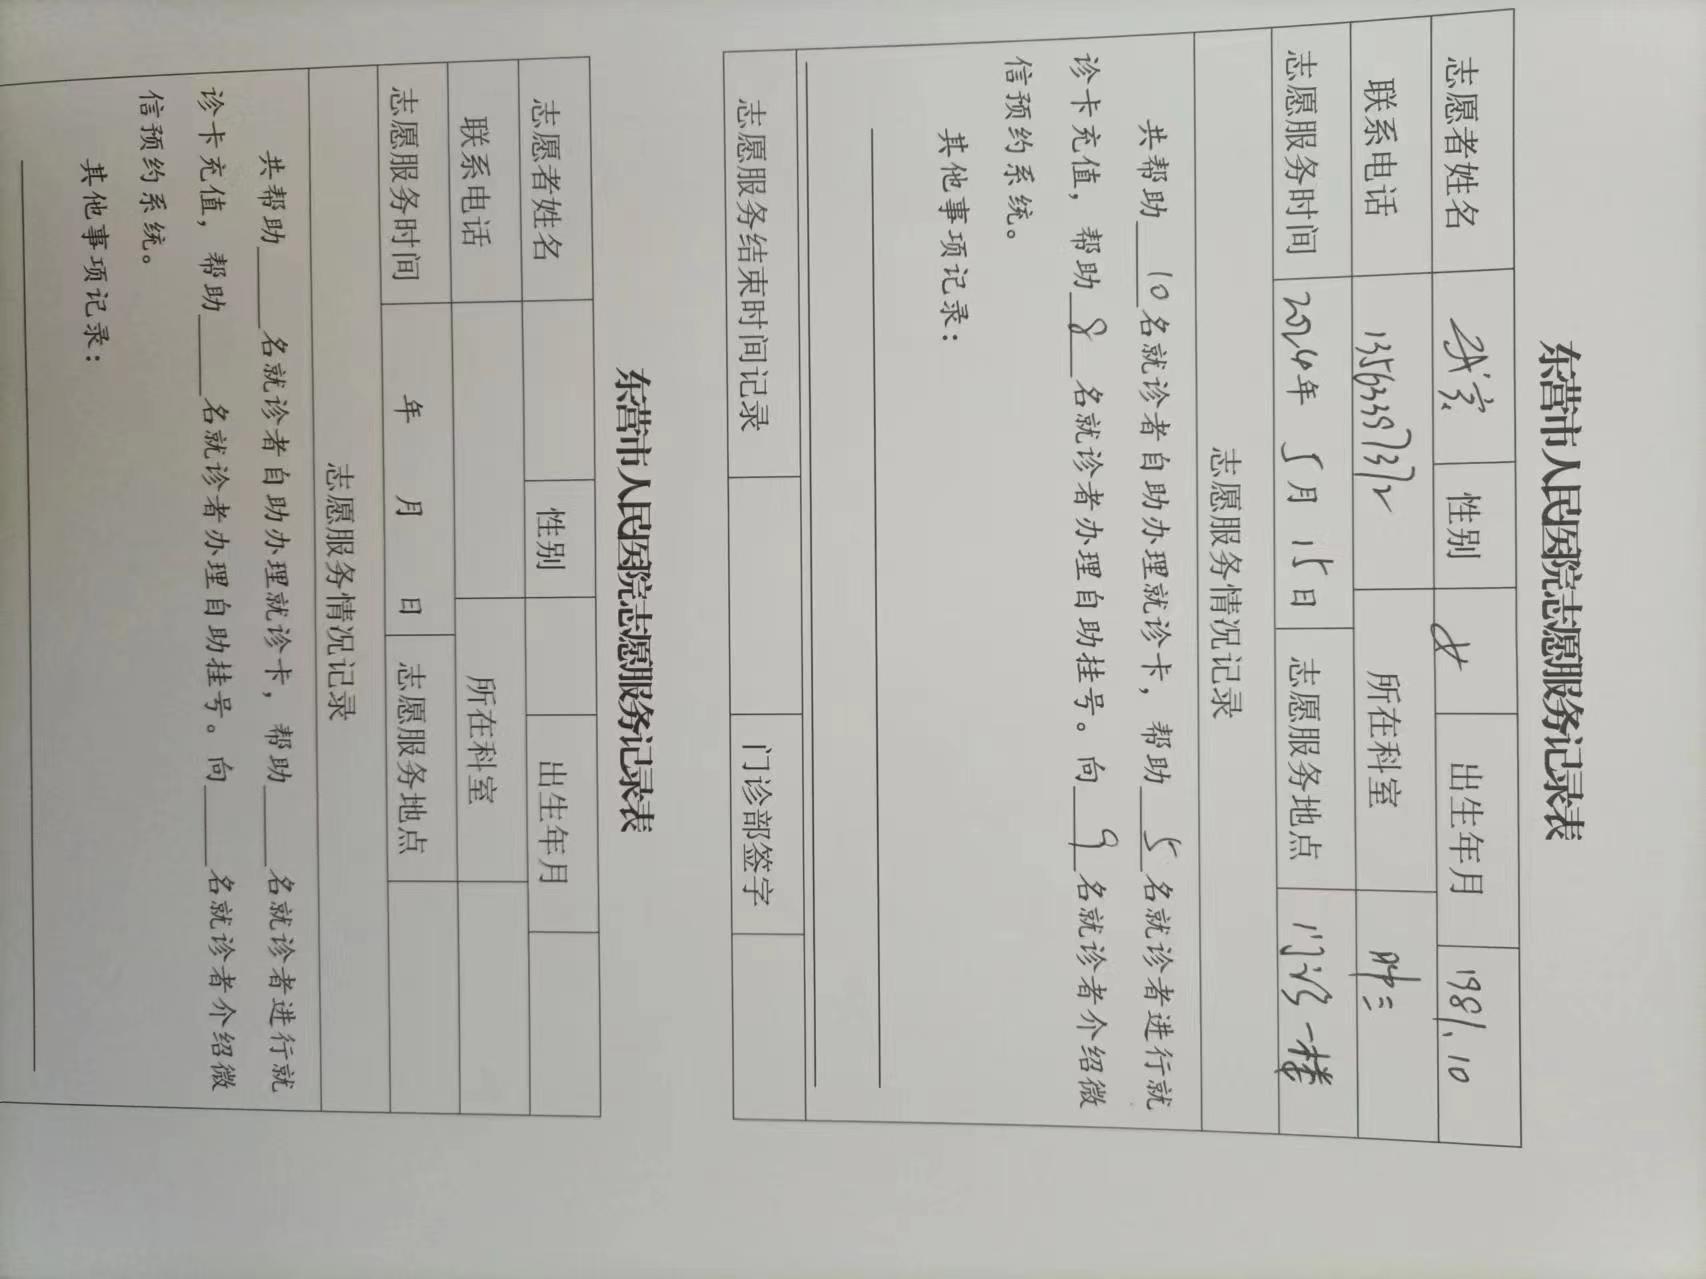 东营市人民医院志愿服务记录表
志愿者姓名 性别 女 出生年月 1981.10
联系电话 所在科室
志愿服务时间 2024年 5月 15日 志愿服务地点 门诊一楼
志愿服务情况记录
共帮助 10 名就诊者自助办理就诊卡，帮助 5 名就诊者进行就
诊卡充值，帮助 8 名就诊者办理自助挂号。向 9 名就诊者介绍微
信预约系统。
其他事项记录：
志愿服务结束时间记录 门诊部签字
东营市人民医院志愿服务记录表
志愿者姓名 性别 出生年月
联系电话 所在科室
志愿服务时间 年 月 日 志愿服务地点
志愿服务情况记录
共帮助____名就诊者自助办理就诊卡，帮助____名就诊者进行就
诊卡充值，帮助____名就诊者办理自助挂号。向____名就诊者介绍微
信预约系统。
其他事项记录：